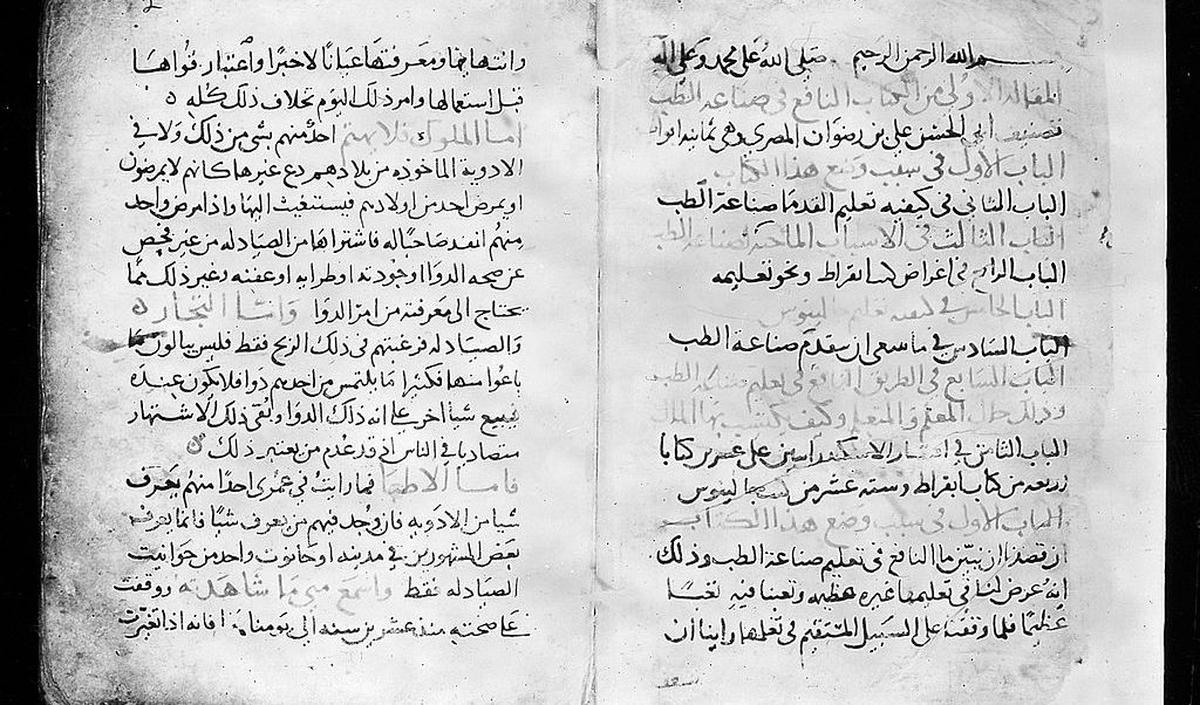 بسم الله الرحمن الرحيم صلى الله على محمد وعلى اله
المقاله الاولى من الكتاب النافع في صناعة الطب
تصنيف ابي الحسن علي بن رضوان المصري وهي ثمانيه ابواب
الباب الاول في سبب وضع هذا الكتاب
الباب الثاني في كيفيه تعليم القدما صناعة الطب
الباب الثالث في الاسباب الماحقة لصناعة الطب
الباب الرابع في اغراض كتب ابقراط ونحو تعليمه
الباب الخامس في كيفيه تعليم جالينوس
الباب السادس في ما ينبغي ان يتقدم صناعة الطب
الباب السابع في الطريق النافع في تعليم صناعة الطب
وذلك حال المعلم والمتعلم وكيف تكتسب بها الملكه
الباب الثامن في اقتصار الاسكندرانيين على عشرين كتابا
اربعه من كتب ابقراط وسته عشر من كتب جالينوس
الباب الاول في سبب وضع هذا الكتاب
ان قصدنا ان نبين ما النافع في تعليم صناعة الطب وذلك
انه عرض لنا في تعليمها غيره عظيمه وتعبنا فيه تعبا
عظيما فلما وقفت على السبيل المستقيم في تعلمها راينا ان
وانتهابها ومعرفتها عيانا لا خبرا واعتبار قواها
قبل استعمالها وامر ذلك اليوم بخلاف ذلك كله
اما الملوك فلا يهتم احد منهم بشي من ذلك ولا في
الادوية الماخوذه من بلادهم دع غيرها كانهم لا يمرضون
او يمرض احد من اولادهم فيستغيث اليها واذا مرض واحد
منهم انفذ صاحبا له فاشتراها من الصيادله من غير فحص
عن صحه الدوا او جودته او طرايه او عفنه وغير ذلك مما
يحتاج الى معرفته من امر الدوا وامّا التجار
والصيادله فرغبتهم في ذلك الربح فقط فليس يبالون ما
باعوا منها فكثيرا ما يلتمس من احدهم دوا فلا يكون عنده
فيبيع شيا اخر على انه ذلك الدوا وبقى ذلك الاشتهار
متصاديا في الناس اذ قد عدم من يعتبر ذلك
فامّا الاطبا فما رايت في عمري احدا منهم يعرف
شيا من الادويه فان وجد فيهم من يعرف شيا فانما يعرف
بعض المشهورين في مدينه او حانوت واحد من حوانيت
الصيادله فقط واسمع مني ما شاهدته ووقفت
على صحته منذ عشرين سنه الى يومنا هذا فانه اذا تغيرت